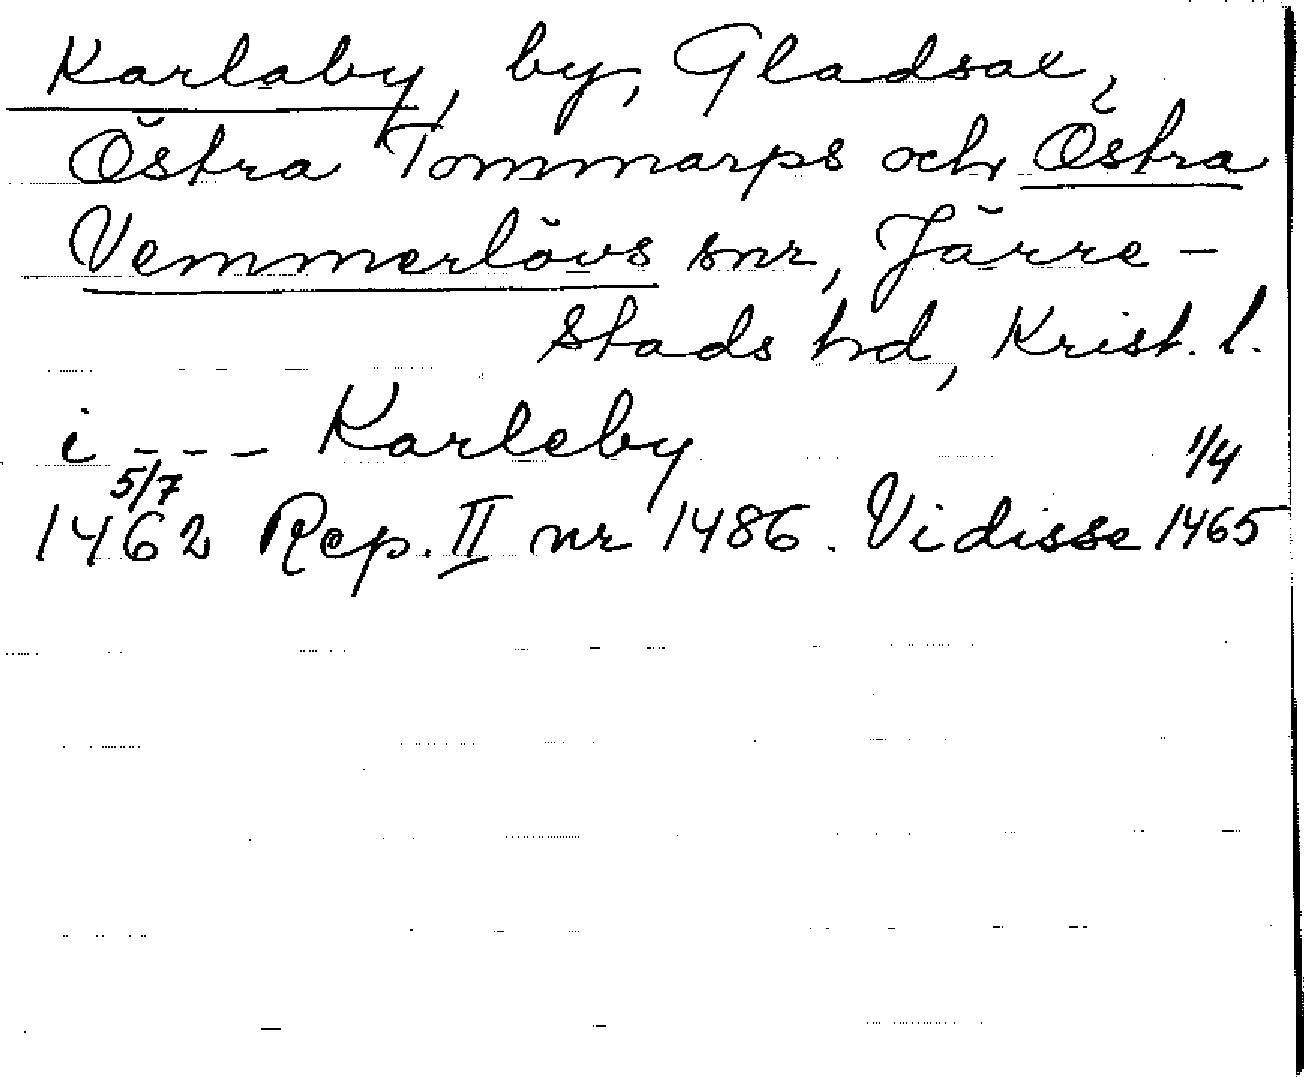 Karlaby, by, Gladsax,
Östra Tommarps och Östra
Vemmerlövs snr, Järre-
stads hd, Krist. l.
i --- Karleby
5/7 1/4
1462 Rep. II nr 1486. Vidisse 1465